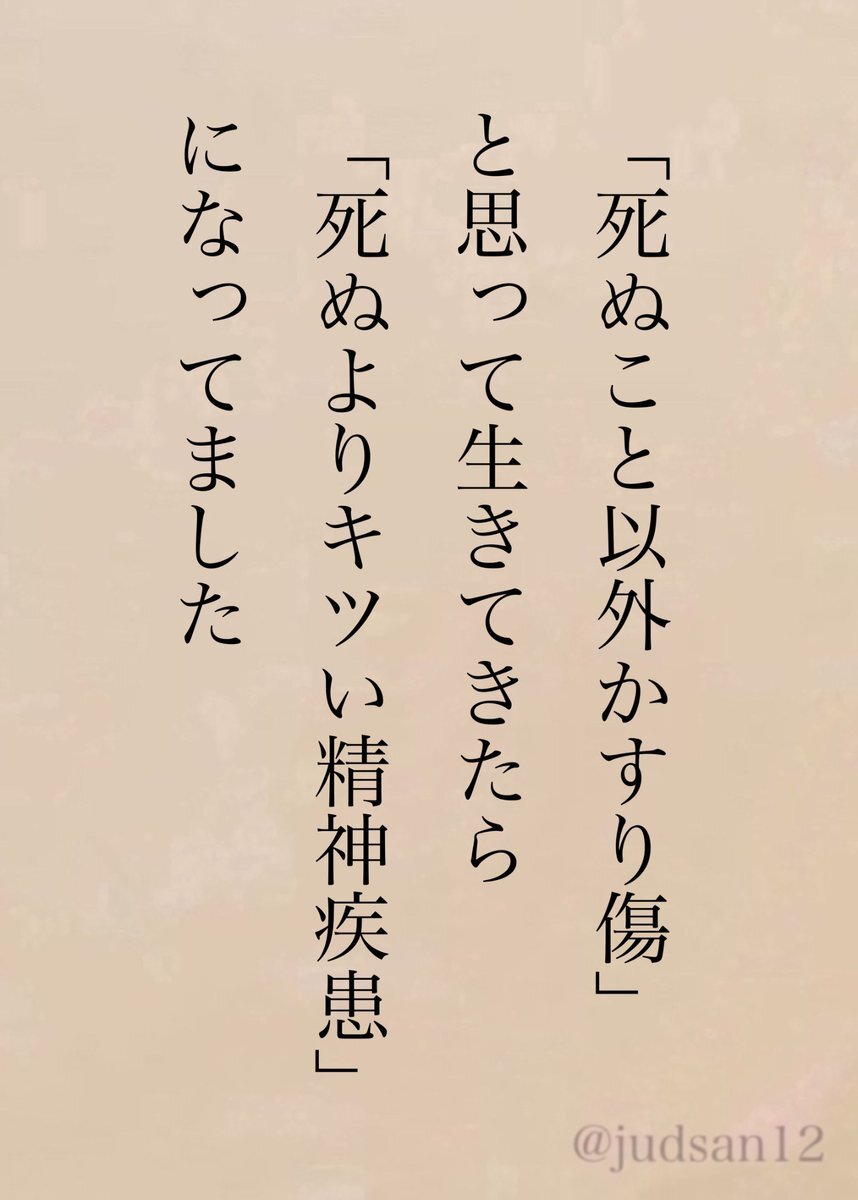 「死ぬこと以外かすり傷」
と思って生きてきたら
「死ぬよりキツい精神疾患」
になってました
@judsan12